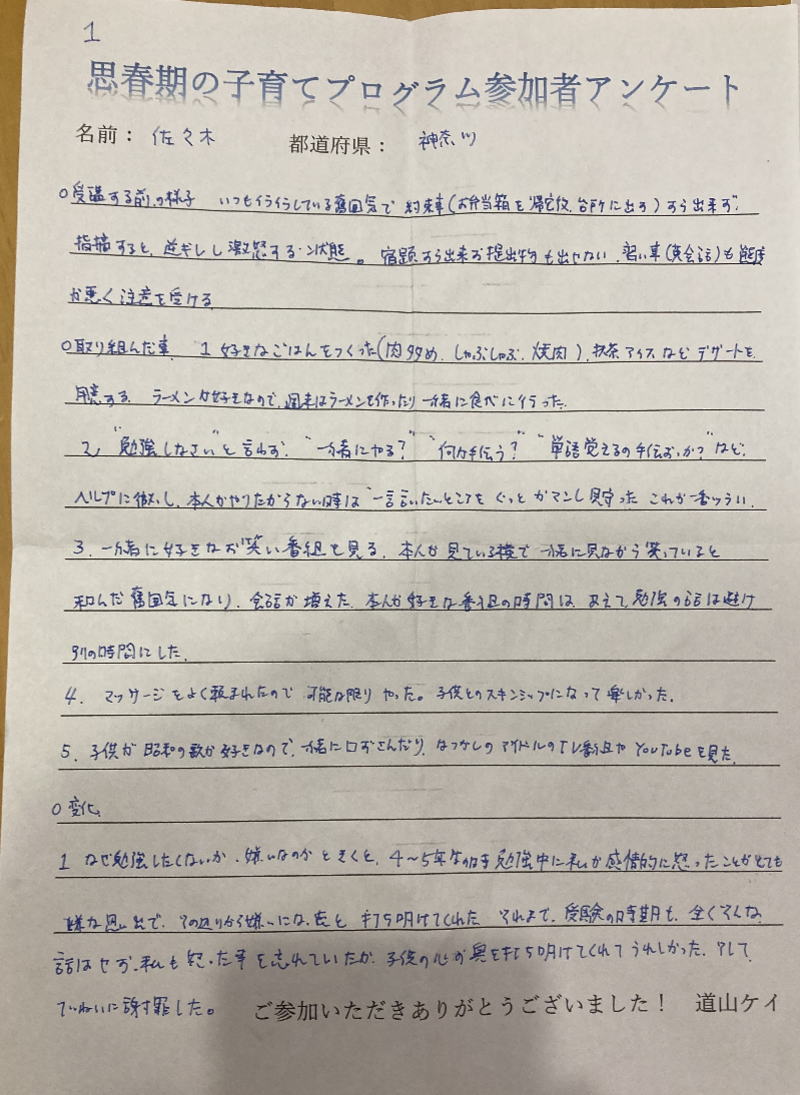 1
思春期の子育てプログラム参加者アンケート
名前： 佐々木 都道府県： 神奈川
○受講する前の様子 いつもイライラしている雰囲気で 約束事(お弁当箱を帰宅後、台所に出す)すら出来ず
指摘すると、逆ギレし激怒する状態。宿題すら出来ず提出物も出せない。習い事(英会話)も態度
が悪く注意を受ける
○取り組んだ事 1 好きなごはんをつくった(肉多め、しゃぶしゃぶ、焼肉)、抹茶アイスなどデザートを
用意する。ラーメンが好きなので、週末はラーメンを作ったり一緒に食べに行った。
2 "勉強しなさい"と言わず、"一緒にやる？" "何か手伝う？" "単語覚えるの手伝おっか？"など、
ヘルプに徹し、本人がやりたがらない時は一言言いたいところをぐっとガマンし見守った これが一番ツラい
3. 一緒に好きなお笑い番組を見る。本人が見ている横で一緒に見ながら笑っていると
和んだ雰囲気になり、会話が増えた。本人が好きな番組の時間は、あえて勉強の話は避け
別の時間にした。
4. マッサージをよく頼まれたので 可能な限りやった。子供とのスキンシップになって楽しかった。
5. 子供が昭和の歌が好きなので、一緒に口ずさんだり、なつかしのアイドルのTV番組やYouTubeを見た。
○変化
1 なぜ勉強したくないか、嫌いなのかときくと、4〜5年生の時勉強中に私が感情的に怒ったことがとても
嫌な思い出で、その辺りから嫌いになったと打ち明けてくれた それまで、受験の時期も、全くそんな
話はせず、私も怒った事を忘れていたが、子供の心の奥を打ち明けてくれてうれしかった。そして
ていねいに謝罪した。 ご参加いただきありがとうございました！ 道山ケイ